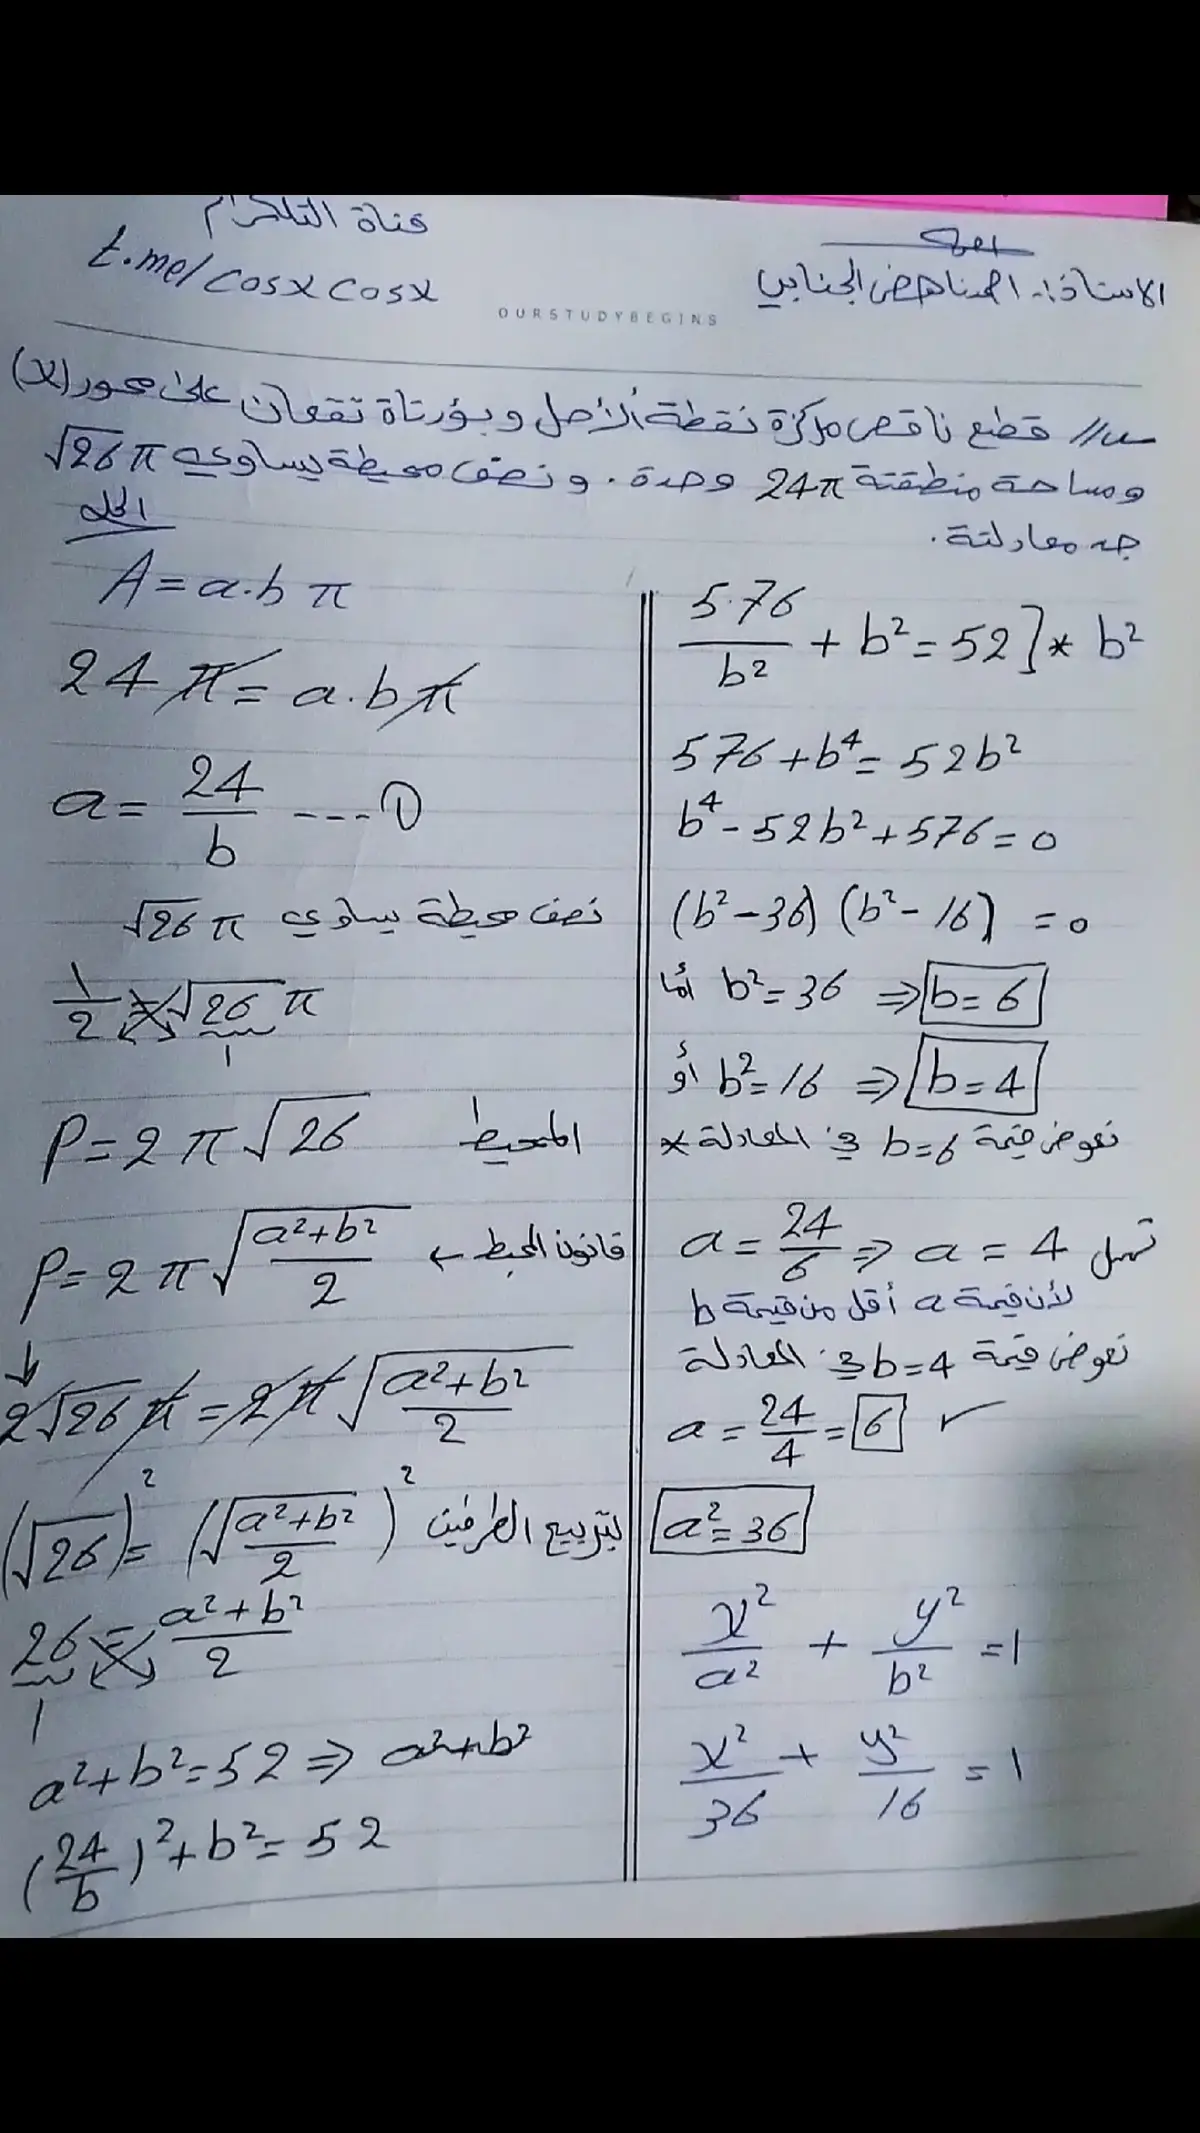 قناة التلكرام
t.me/cosxcosx
الاستاذ:- احمد ناهض الجنابي
OURSTUDYBEGINS
س// قطع ناقص مركزة نقطة ألأصل وبؤرتاة تقعان على محور (x)
ومساحة منطقتة 24π وحدة. ونصف محيطة يساوي √26 π
جد معادلتة.
الحل
A = a.b π
24π = a.bπ
a = 24/b ---- ①
نصف محيطة يساوي √26 π
1/2 = √26 π
1
P = 2π√26 المحيط
P = 2π√((a²+b²)/2) ← قانون المحيط
2√26 π = 2π√((a²+b²)/2)
(√26)² = (√((a²+b²)/2))² بتربيع الطرفين
26 = (a²+b²)/2
1
a²+b²=52 ⇒ a²+b²
(24/b)²+b²=52
576/b² + b² = 52] * b²
576+b⁴=52b²
b⁴-52b²+576=0
(b²-36)(b²-16)=0
أما b²=36 ⇒ b=6
أو b²=16 ⇒ b=4
نعوض قيمة b=6 في المعادلة *
a = 24/6 ⇒ a = 4 تهمل
لأن قيمة a أقل من قيمة b
نعوض قيمة b=4 في المعادلة
a = 24/4 = 6 ✓
a²=36
x²/a² + y²/b² = 1
x²/36 + y²/16 = 1